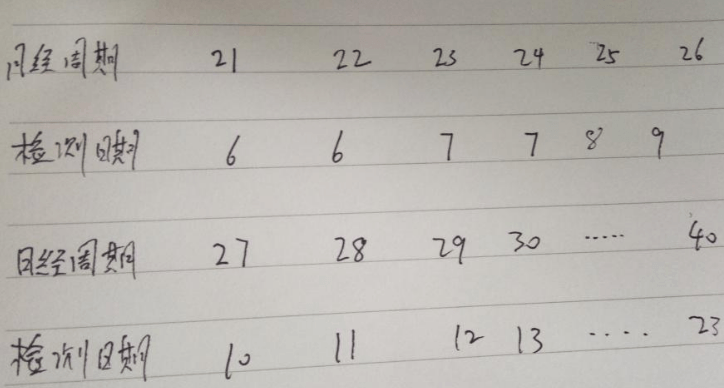 月经周期 21 22 23 24 25 26
检测日期 6 6 7 7 8 9
月经周期 27 28 29 30 ..... 40
检测日期 10 11 12 13 ..... 23